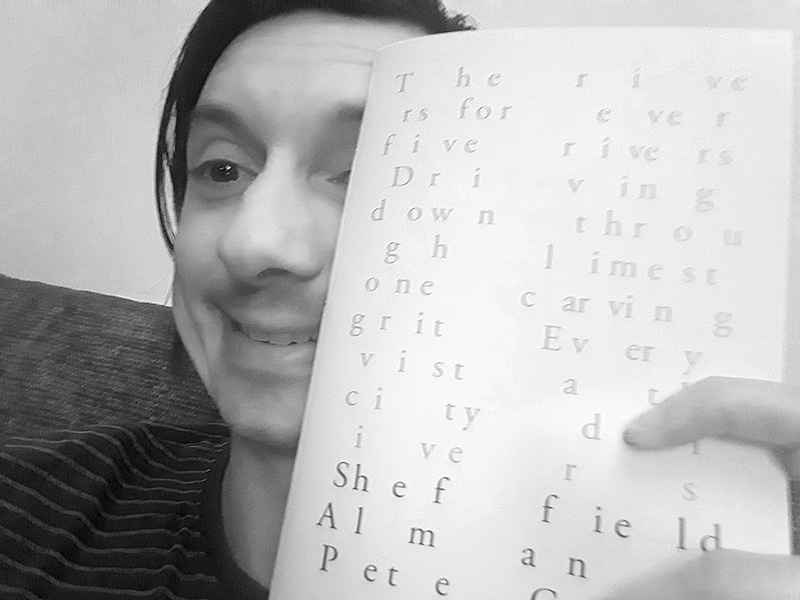 T he r i ve
rs for e ve r
f i ve r i ve rs
D r i v in g
d ow n th r o u
g h l imest
one c ar vi n g
gr it Ev er y
v i st a
c i ty d
i ve r s
Sh e f f ie ld
Al m an
P et e